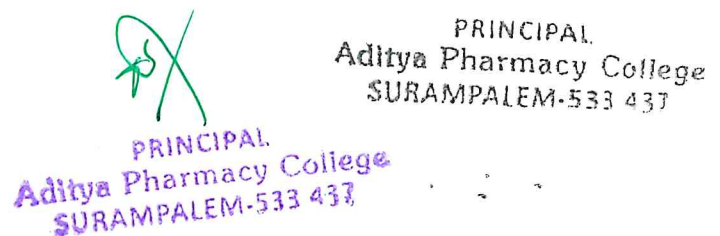 PRINCIPAL
Aditya Pharmacy College
SURAMPALEM-533 437
PRINCIPAL
Aditya Pharmacy College
SURAMPALEM-533 437